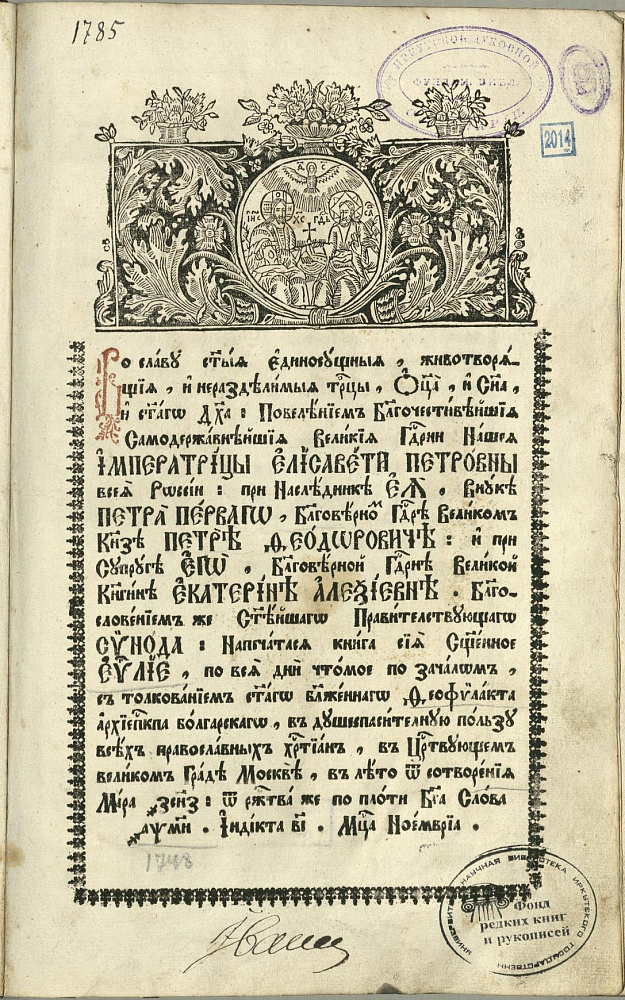 1785
ИРКУТСКОЙ ДУХОВНОЙ
ФУНДАМ. БИБЛ
2014
ІС ХС ГДЬ
Во сла́вꙋ ст҃ы́ѧ Є҆диносꙋ́щныѧ , животворѧ́-
щїѧ , и҆ нераздѣли́мыѧ трⷪ҇цы , Ѻ҆ц҃а̀ , и҆ Сн҃а ,
и҆ ст҃а́гѡ Дх҃а : Повелѣ́нїемъ Бл҃гочести́вѣйшїѧ
Самодержа́внѣйшїѧ Вели́кїѧ Гдⷭ҇рни На́шеѧ
І҆МПЕРАТРИ́ЦЫ Є҆ЛІСАВЕ́ТЫ ПЕТРО́ВНЫ
всеѧ̀ Рѡссі́и : при Наслѣ́дникѣ Є҆Ѧ̀ , Внꙋ́кѣ
ПЕТРА̀ ПЕ́РВАГѠ , Бл҃говѣ́рномъ Гдⷭ҇рѣ Вели́комъ
Кнѧ́зѣ ПЕТРѢ̀ Ѳ҆ЕОДѠ́РОВИЧѢ : и҆ при
Сꙋпрꙋ́гѣ Є҆ГѠ̀ , Бл҃говѣ́рной Гдⷭ҇рнѣ Вели́кой
Кнѧги́нѣ Є҆КАТЕРІ́НѢ А҆ЛЕѮІ́ЕВНѢ . Бл҃го-
слове́нїемъ же Ст҃ѣ́йшагѡ Прави́телствꙋющагѡ
СѴНО́ДА : Напеча́тасѧ кни́га сїѧ̀ Сщ҃е́нное
Є҆ѴⷢЛІЕ , по всѧ̀ дни̑ что́мое по зача́лѡмъ ,
съ толкова́нїемъ ст҃а́гѡ бл҃же́ннагѡ Ѳ҆еофѵла́кта
а҆рхїепⷭ҇кпа бо́лгарскагѡ , въ дꙋшеспаси́телнꙋю по́льзꙋ
всѣ́хъ правосла́вныхъ хрⷭ҇тїа́нъ , въ Црⷭ҇твꙋ́ющемъ
вели́комъ Гра́дѣ Москвѣ̀ , въ лѣ́то ѿ сотворе́нїѧ
Мі́ра ҂зсн҃з : ѿ рж҃тва̀ же по пло́ти Бг҃а Сло́ва
҂аѱм҃и . І҆ндї́кта в҃і . Мцⷭ҇а Ное́мврїа .
1748
НАУЧНАЯ БИБЛИОТЕКА ИРКУТСКОГО ГОСУДАРСТВЕНН УНИВЕРСИТ
Фонд
редких книг
и рукописей